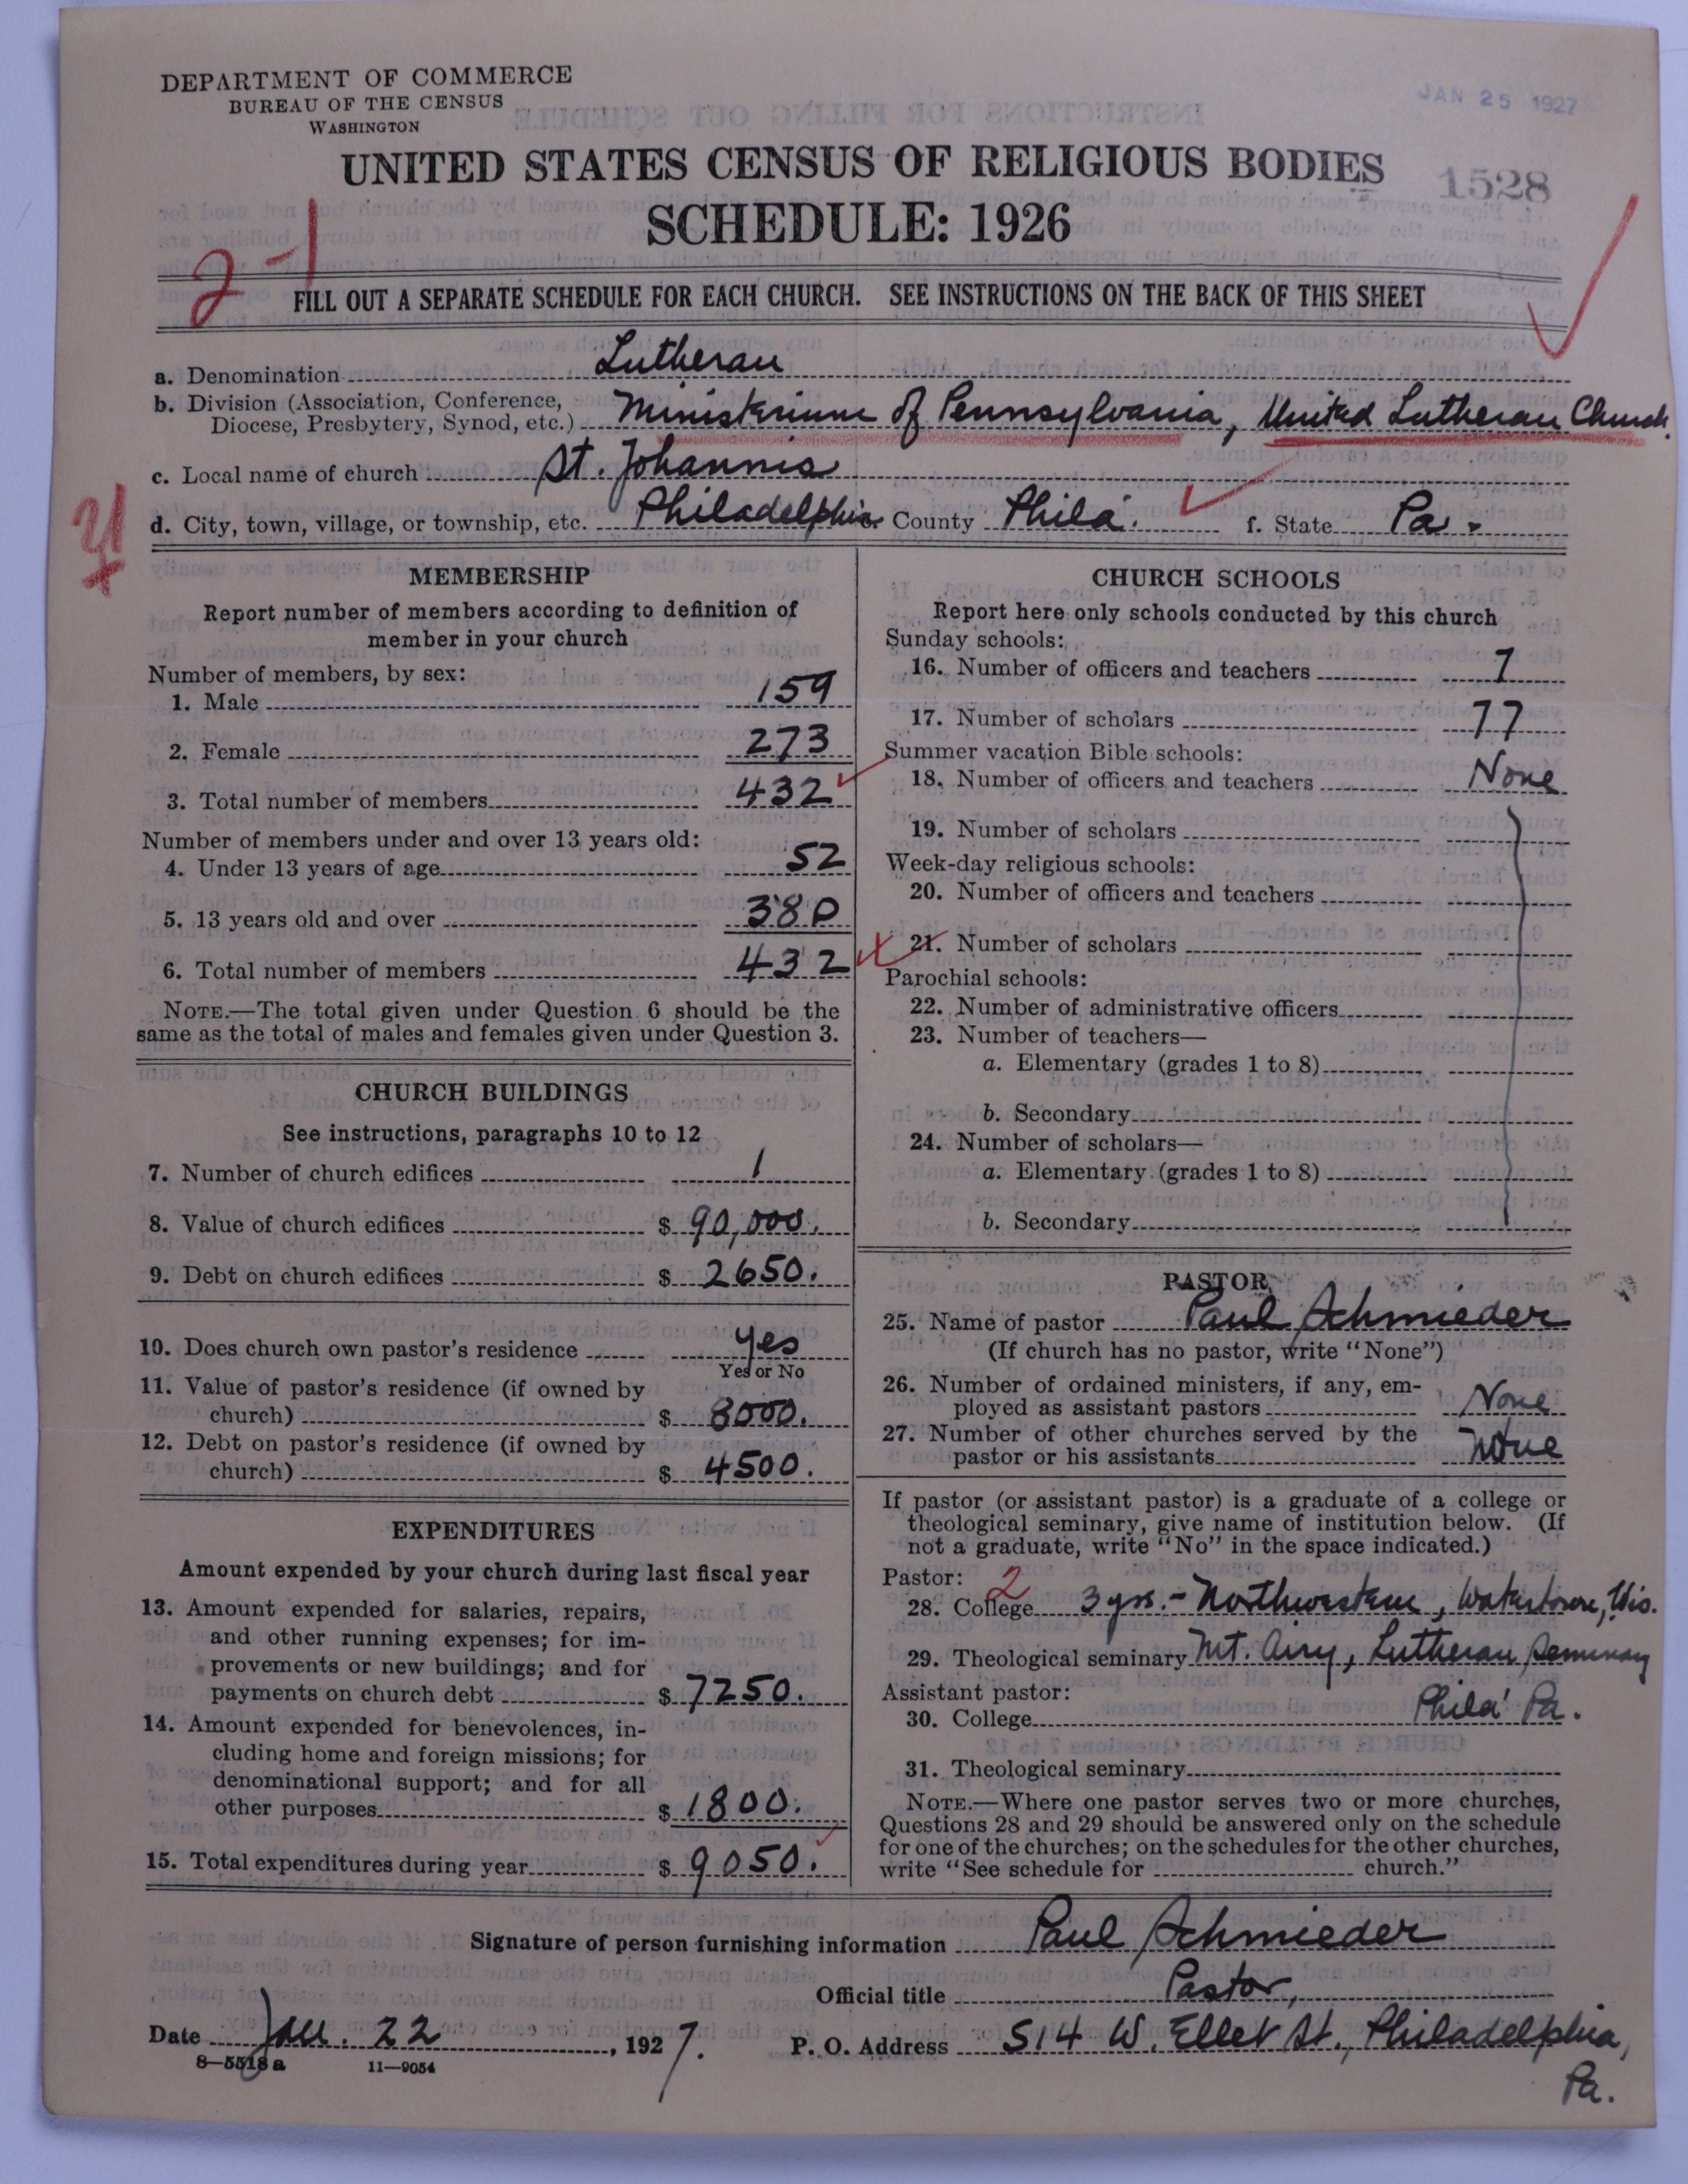 DEPARTMENT OF COMMERCE
BUREAU OF THE CENSUS
WASHINGTON
JAN 25 1927
UNITED STATES CENSUS OF RELIGIOUS BODIES
1528
SCHEDULE: 1926
2-1
FILL OUT A SEPARATE SCHEDULE FOR EACH CHURCH. SEE INSTRUCTIONS ON THE BACK OF THIS SHEET
a. Denomination Lutheran
b. Division (Association, Conference,
Diocese, Presbytery, Synod, etc.) Ministerium of Pennsylvania, United Lutheran Church.
c. Local name of church St. Johannis
d. City, town, village, or township, etc. Philadelphia County Phila. f. State Pa.
MEMBERSHIP
Report number of members according to definition of
member in your church
Number of members, by sex:
1. Male 159
2. Female 273
3. Total number of members 432
Number of members under and over 13 years old:
4. Under 13 years of age 52
5. 13 years old and over 380
6. Total number of members 432
NOTE.—The total given under Question 6 should be the
same as the total of males and females given under Question 3.
CHURCH BUILDINGS
See instructions, paragraphs 10 to 12
7. Number of church edifices 1
8. Value of church edifices $ 90,000.
9. Debt on church edifices $ 2650.
10. Does church own pastor's residence yes
Yes or No
11. Value of pastor's residence (if owned by
church) $ 8000.
12. Debt on pastor's residence (if owned by
church) $ 4500.
EXPENDITURES
Amount expended by your church during last fiscal year
13. Amount expended for salaries, repairs,
and other running expenses; for im-
provements or new buildings; and for
payments on church debt $ 7250.
14. Amount expended for benevolences, in-
cluding home and foreign missions; for
denominational support; and for all
other purposes $ 1800.
15. Total expenditures during year $ 9050.
CHURCH SCHOOLS
Report here only schools conducted by this church
Sunday schools:
16. Number of officers and teachers 7
17. Number of scholars 77
Summer vacation Bible schools:
18. Number of officers and teachers None
19. Number of scholars
Week-day religious schools:
20. Number of officers and teachers
21. Number of scholars
Parochial schools:
22. Number of administrative officers
23. Number of teachers—
a. Elementary (grades 1 to 8)
b. Secondary
24. Number of scholars—
a. Elementary (grades 1 to 8)
b. Secondary
PASTOR
25. Name of pastor Paul Schmieder
(If church has no pastor, write "None")
26. Number of ordained ministers, if any, em-
ployed as assistant pastors None
27. Number of other churches served by the
pastor or his assistants None
If pastor (or assistant pastor) is a graduate of a college or
theological seminary, give name of institution below. (If
not a graduate, write "No" in the space indicated.)
Pastor: 2
28. College 3 yrs.- Northwestern, Watertown, Wis.
29. Theological seminary Mt. Airy, Lutheran Seminary
Assistant pastor: Phila Pa.
30. College
31. Theological seminary
NOTE.—Where one pastor serves two or more churches,
Questions 28 and 29 should be answered only on the schedule
for one of the churches; on the schedules for the other churches,
write "See schedule for church."
Signature of person furnishing information Paul Schmieder
Official title Pastor,
Date Jan. 22, 1927. P. O. Address 514 W. Ellet St., Philadelphia,
Pa.
8-5518a 11-9054